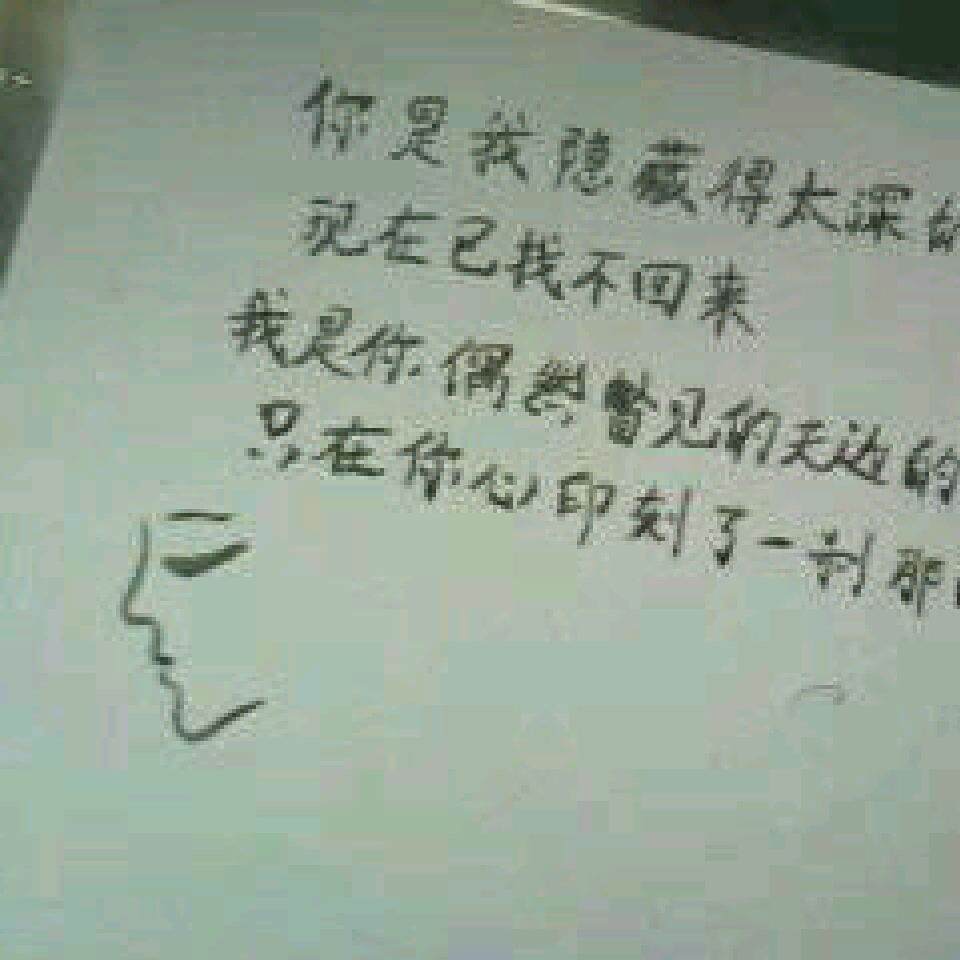 你是我隐藏得太深的
现在已找不回来
我是你偶然瞥见的无边的
只在你心印刻了一刹那